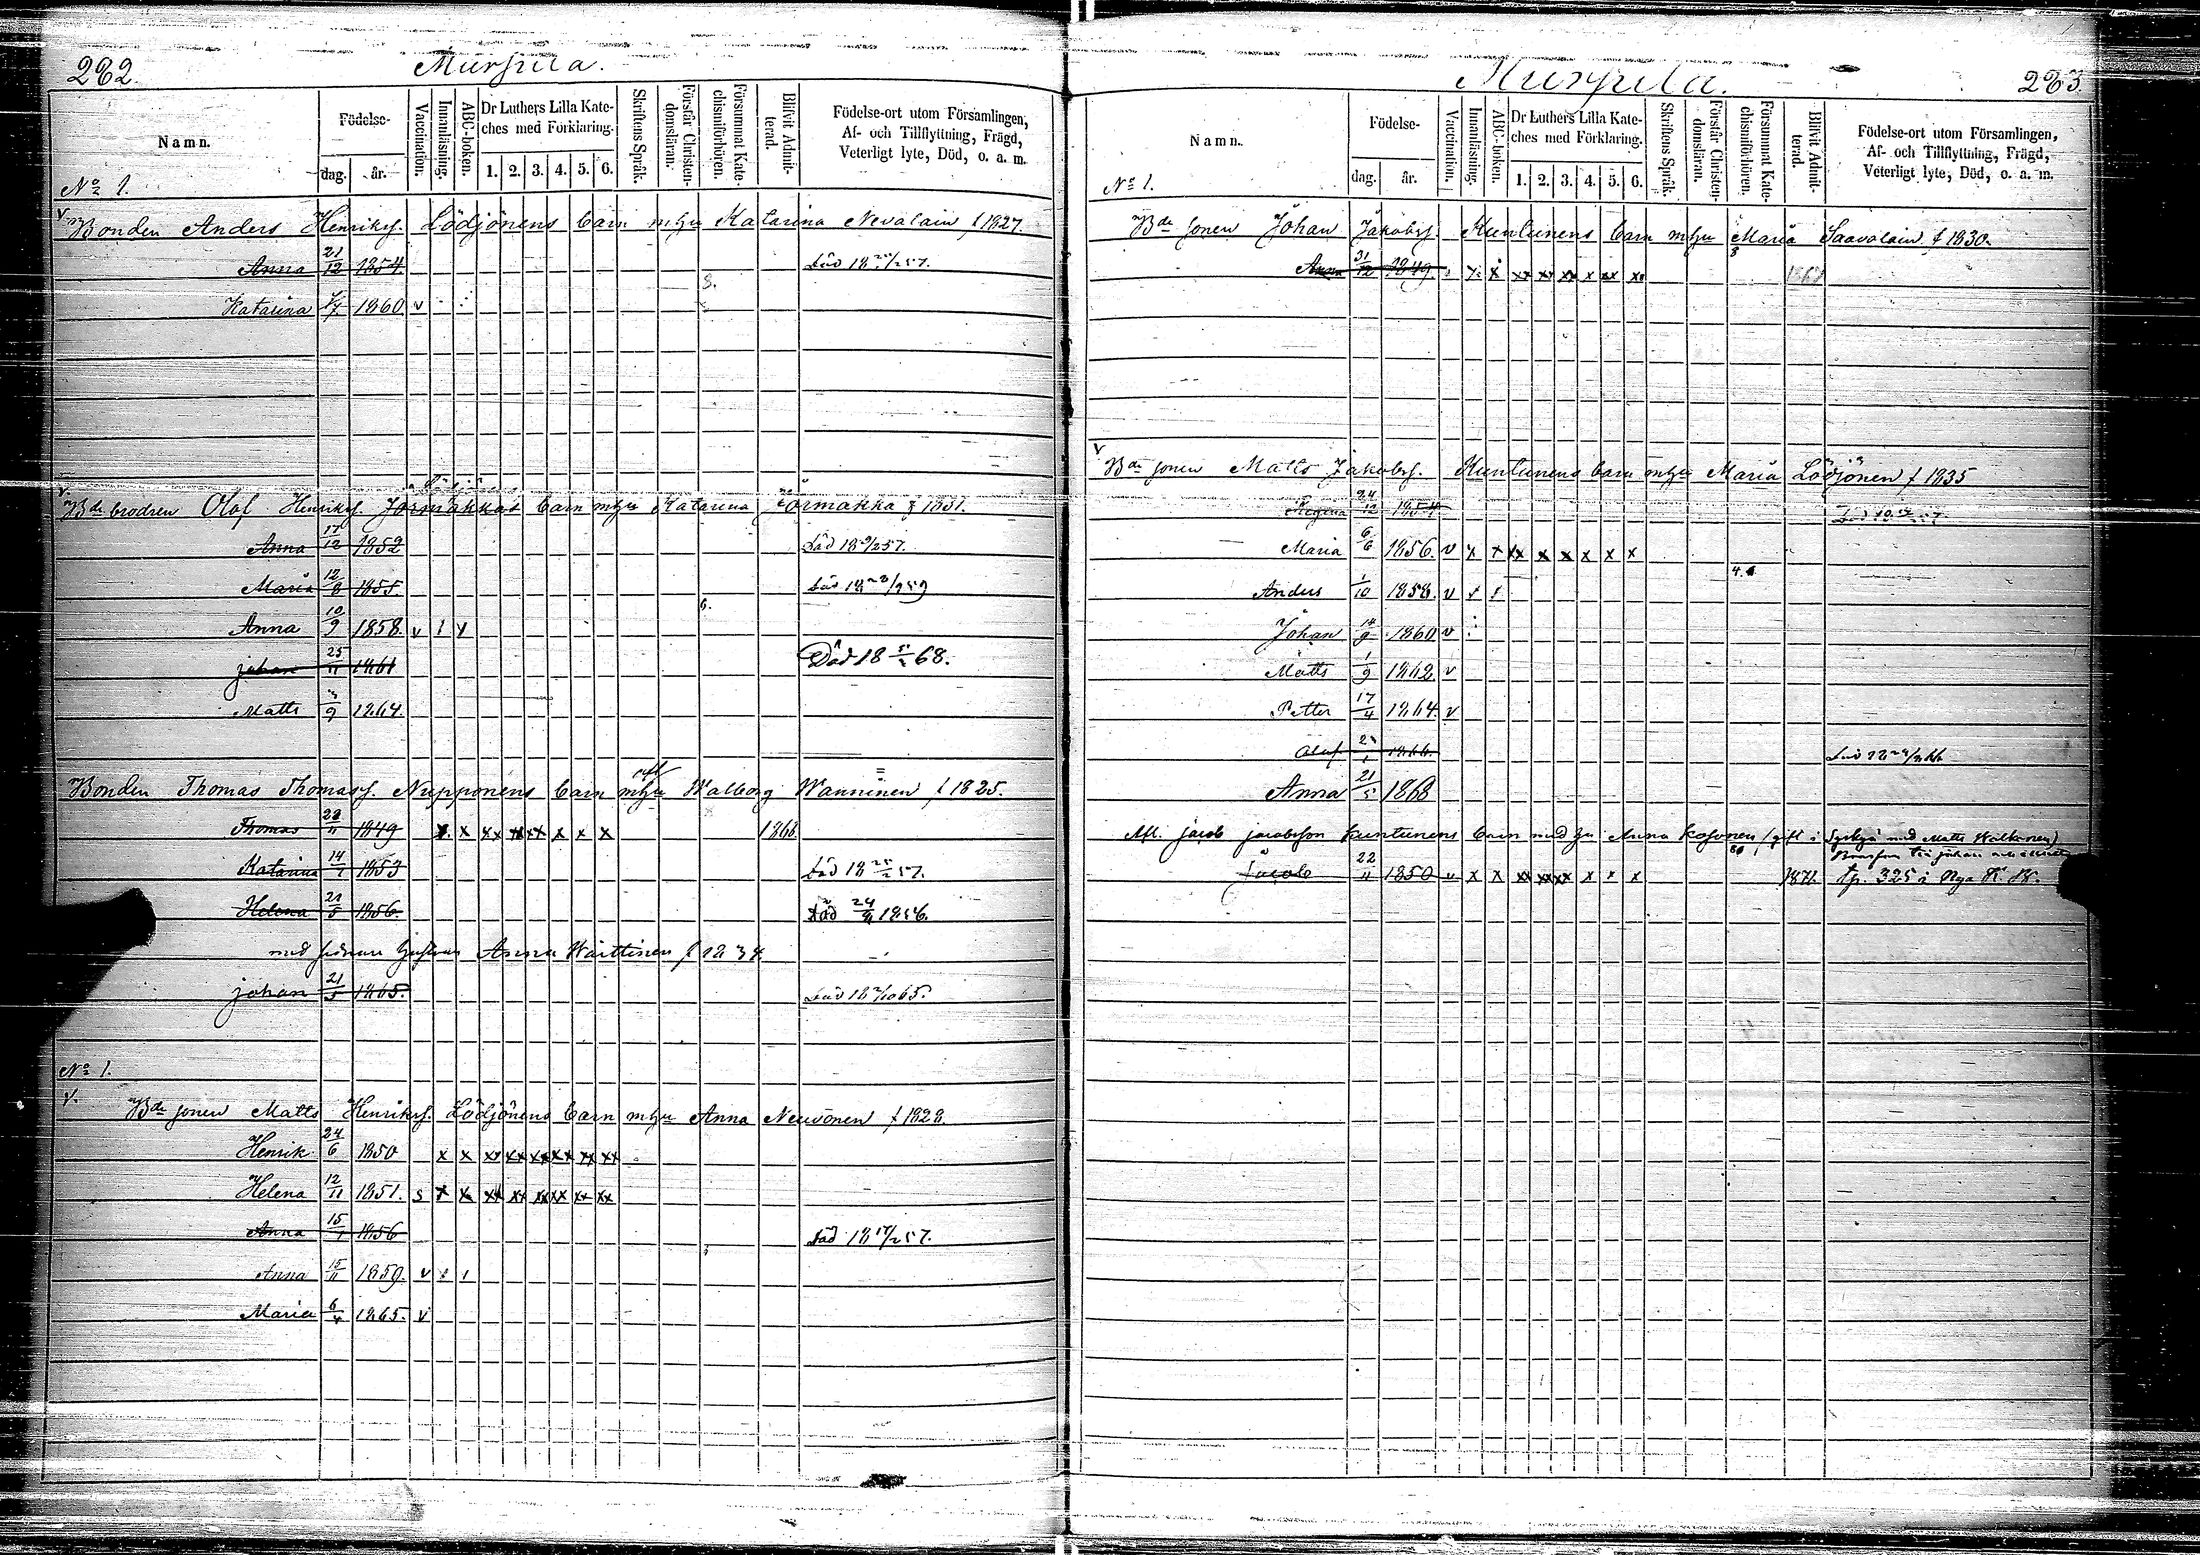 262.
Mursula.
Namn.
Födelse-
dag.
år.
Vaccination.
Innanläsning.
ABC-boken.
Dr Luthers Lilla Kate-
ches med Förklaring.
1. 2. 3. 4. 5. 6.
Skriftens Språk.
Förstår Christen-
domsläran.
Försummat Kate-
chismiförhören.
Blifvit Admit-
terad.
Födelse-ort utom Församlingen,
Af- och Tillflyttning, Frägd,
Veterligt lyte, Död, o. a. m.
No 1.
v Bonden Anders Henriks. Lödjönens barn m hu Katarina Nevalain f 1827.
Anna 21/12 1854. Död 18 /2 57.
Katarina 1860 v
8.
Lödjönens
v Bde brodren Olof Henriks. Jormakkas barn m hu Katarina Jormakka f 1831.
Anna 17/12 1852 Död 18 /2 57.
Maria 12/8 1855 Död 18 /9 59
Anna 10/9 1858. v
6.
johan 25/11 1861 Död 18 68.
Matts /9 1864.
Bonden Thomas Thomass. Nupponens barn m hu Walborg Wanninen f 1825.
Thomas 28/11 1849 x x xx xx xx x x x 1868
Katarina 14/1 1853 Död 18 25/2 57.
Helena 21/5 1856. Död 24 1856.
med sednare hustrun Anna Wäittinen f 1834
johan 21/5 1865. Död 18 /10 65.
No 1.
v. Bde sonen Matts Henriks. Lödjönens barn m hu Anna Neuvonen f 1828.
Henrik 24/6 1850 x x xx xx xx xx xx xx
Helena 12/11 1851. s x x xx xx xx xx xx xx
Anna 15/1 1856 Död 18 17/2 57.
Anna 15/11 1859. v
Maria 6/4 1865. v
Mursula.
263
Namn.
Födelse-
dag.
år.
Vaccination.
Innanläsning.
ABC-boken.
Dr Luthers Lilla Kate-
ches med Förklaring.
1. 2. 3. 4. 5. 6.
Skriftens Språk.
Förstår Christen-
domsläran.
Försummat Kate-
chismiförhören.
Blifvit Admit-
terad.
Födelse-ort utom Församlingen,
Af- och Tillflyttning, Frägd,
Veterligt lyte, Död, o. a. m.
No 1.
Bde sonen Johan Jakobs. Kuntunens barn m hu Maria Saavalain f 1830.
Anna 31/12 1849. x x xx xx xx x xx x 8 1867
v Bde sonen Matts Jakobs. Kuntunens barn m hu Maria Lödjönen f 1835
Regina 24/12 1854 Död 18 57
Maria 6/6 1856. v x x xx x x x x x
4.
Anders 1/10 1858. v
Johan 14/9 1860 v
Matts 1/9 1862 v
Petter 17/4 1864. v
Olof 1866. Död 18 66
Anna 21/5 1868
Afl. jacob jacobsson Kuntunens barn med hu Anna Kosonen (gift i Syrjä med Matts
Jacob 22/11 1850 v x x xx xx xx x x x 1871. sp. 325 i Nya K. B.